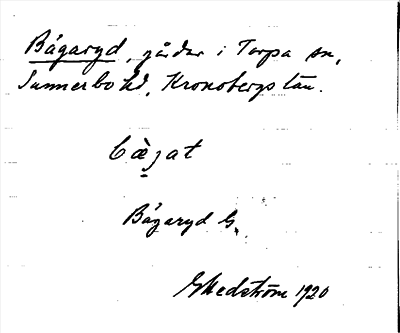 Bågaryd, gårdar i Torpa sn,
Sunnerbo hd, Kronobergs län.
bàgat
Bågaryd G.
GHedström 1920